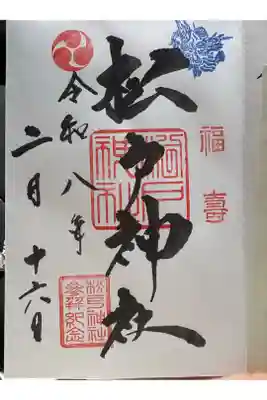 福壽
松戸神社
松戸神社
令和八年
二月十六日
松戸神社
参拝紀念